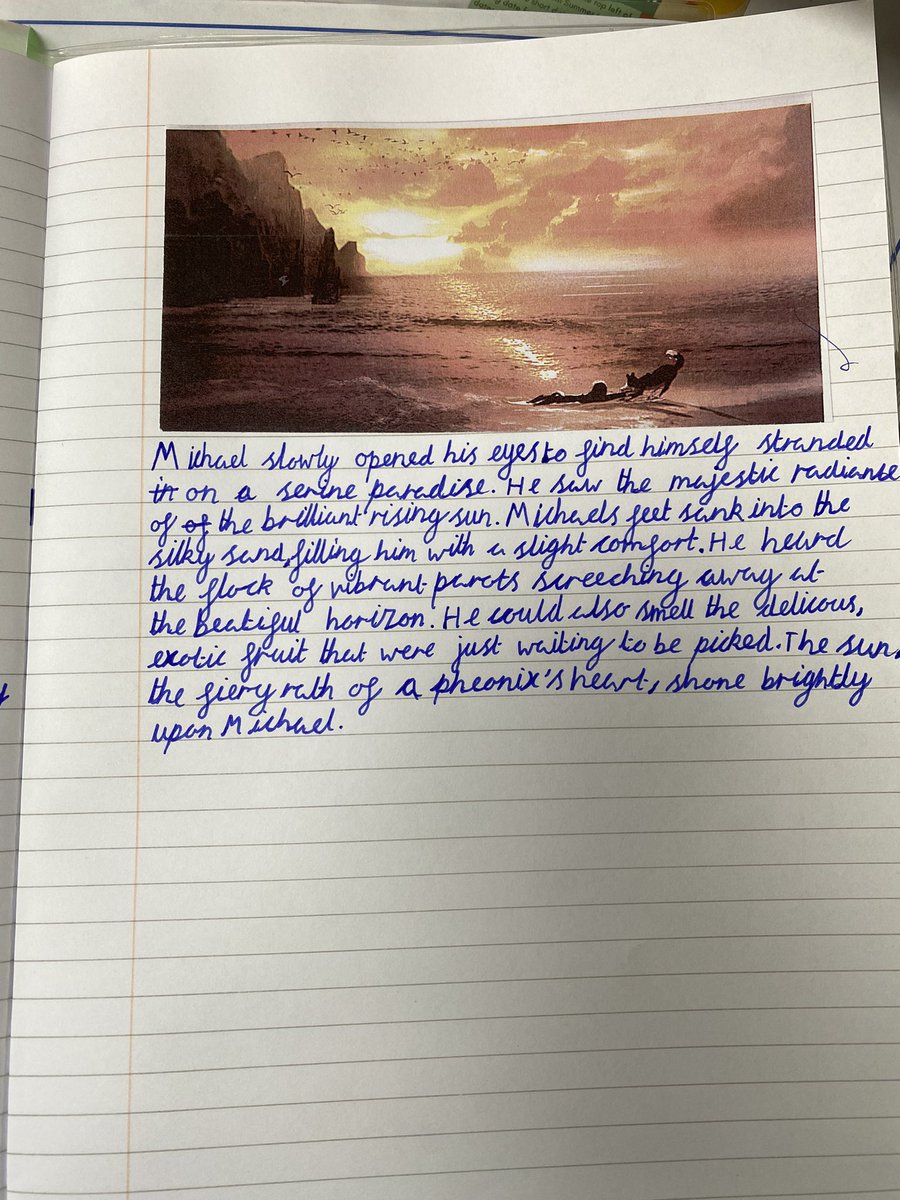 Michael slowly opened his eyes to find himself stranded
in on a serine paradise. He saw the majestic radiance
of of the brilliant rising sun. Michaels feet sank into the
silky sand, filling him with a slight comfort. He heard
the flock of vibrant parots screeching away at
the beatiful horizon. He could also smell the delicous,
exotic fruit that were just waiting to be picked. The sun,
the fiery rath of a pheonix's heart, shone brightly
upon Michael.